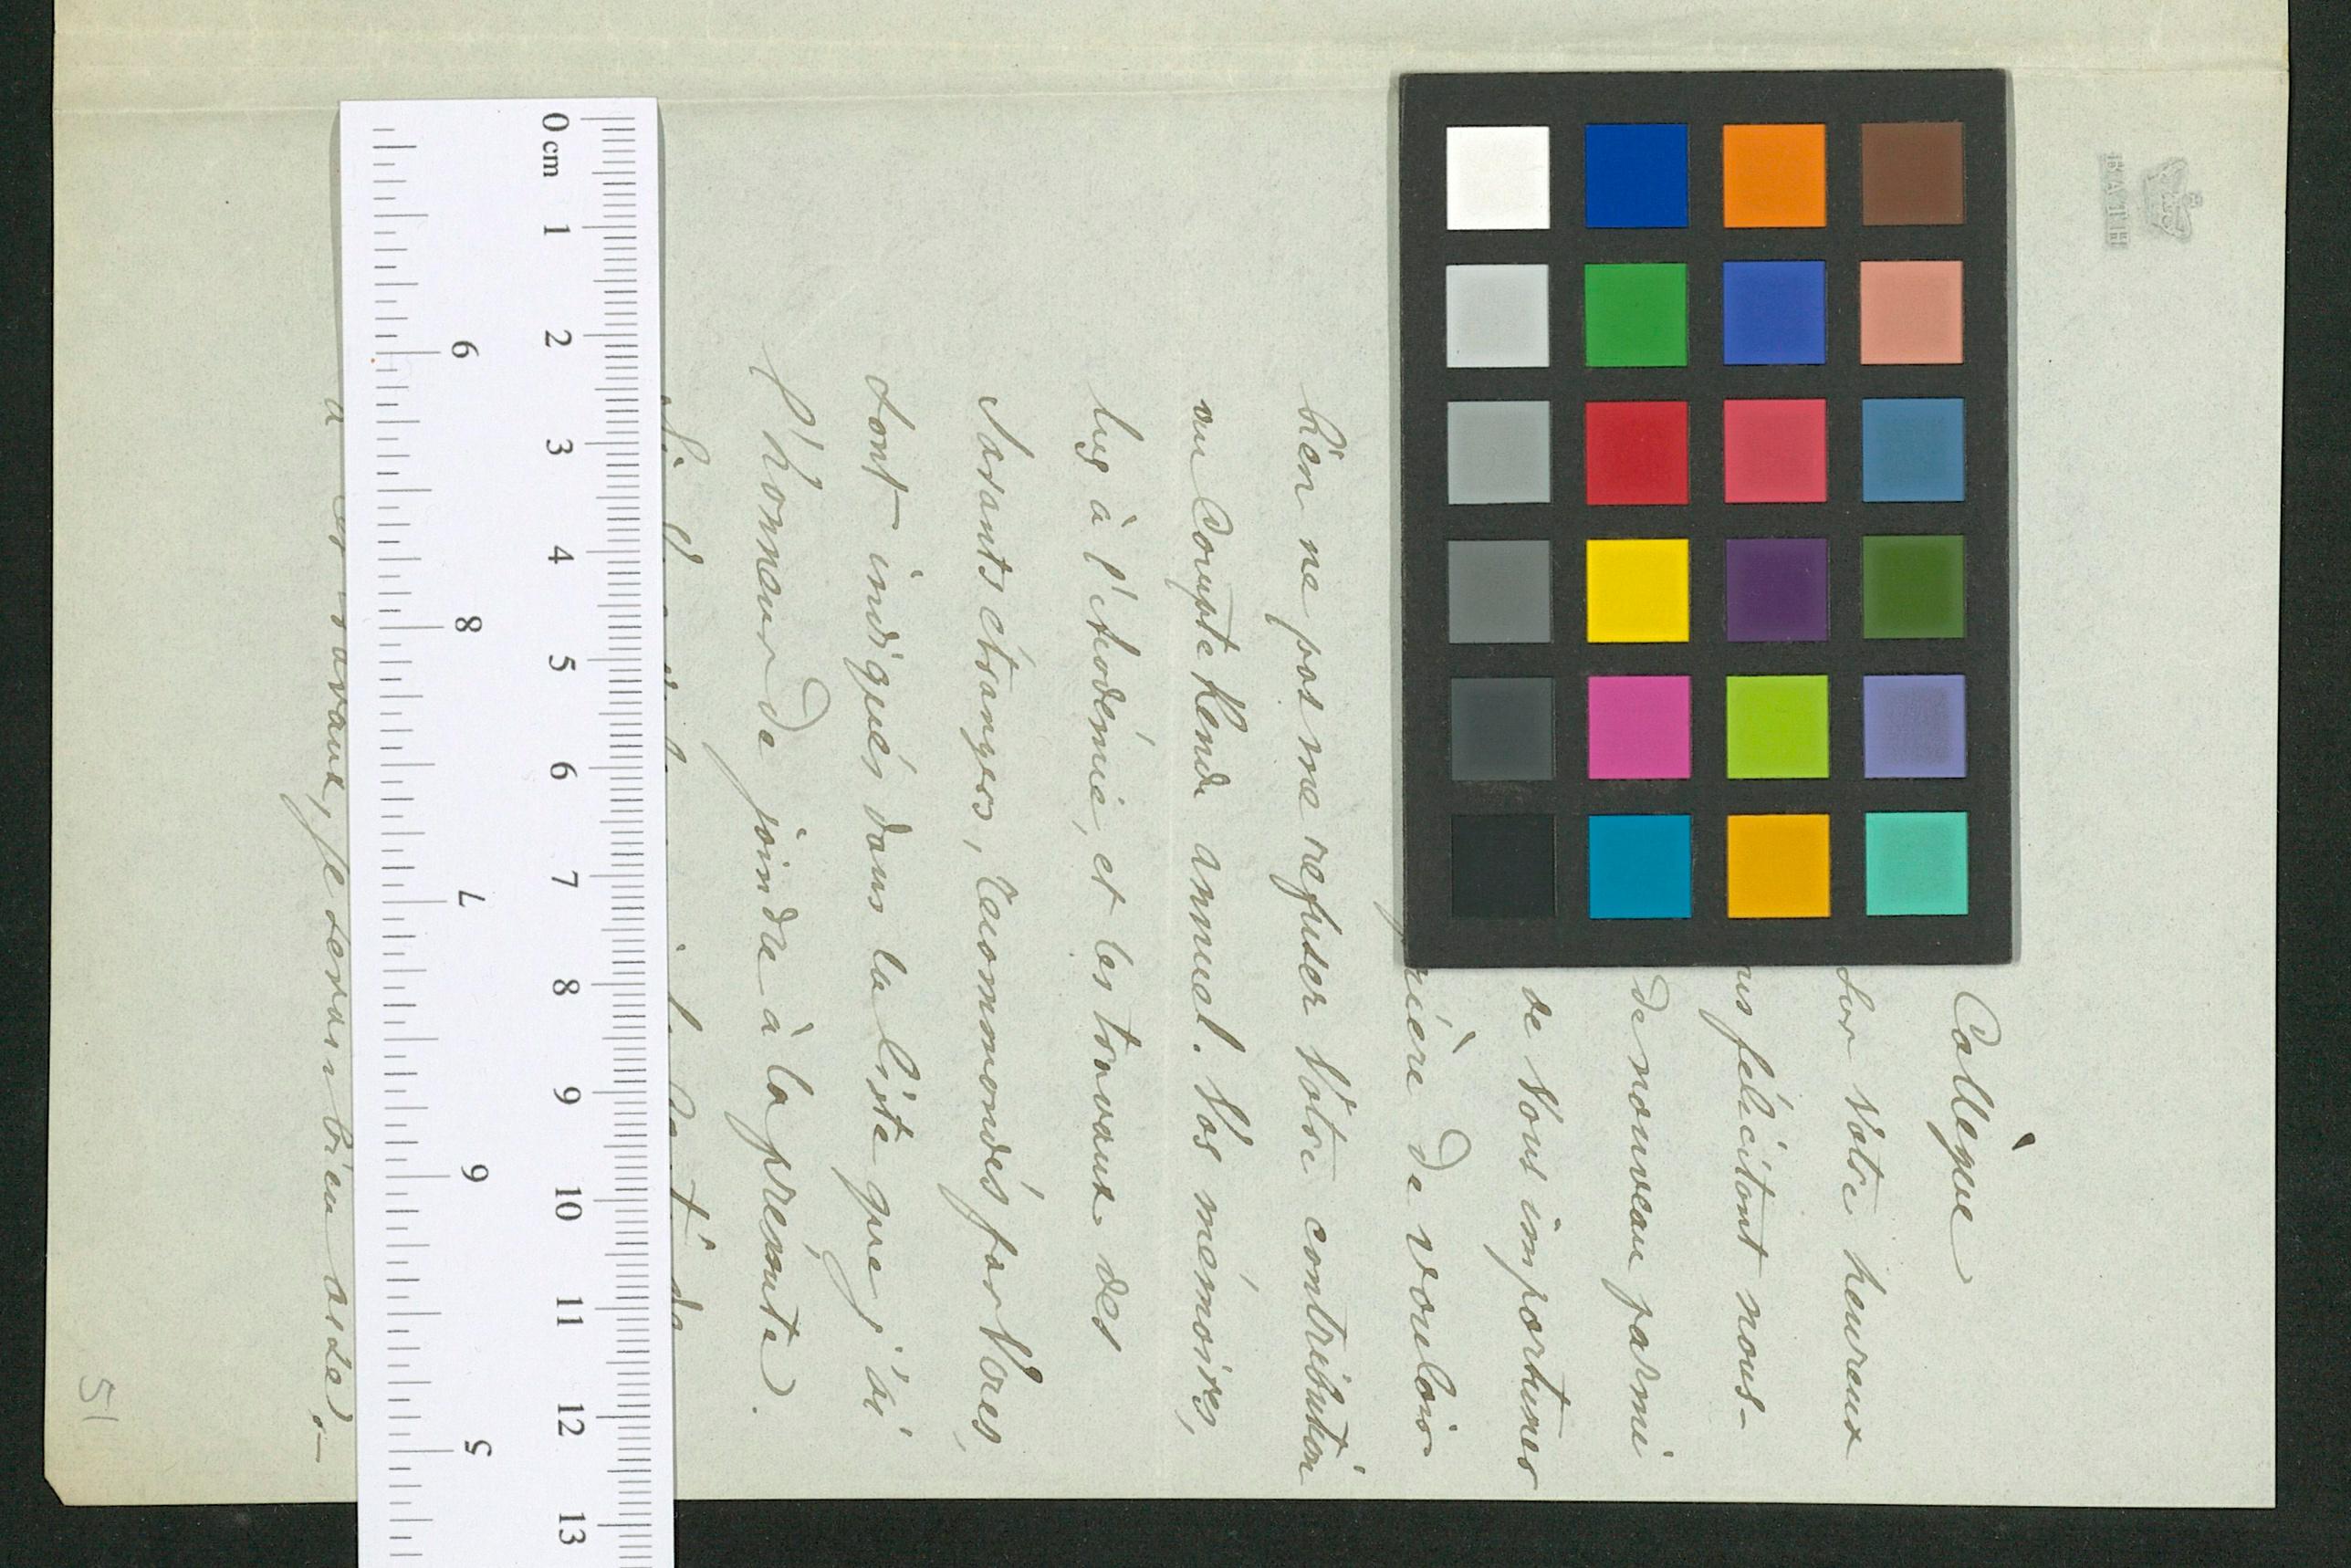 BATH
Collègue
sur Votre heureux
félicitant nous-
de nouveau parmi
de Vous importuner
de vouloir
bien ne pas me refuser Votre contribution
au Compte Rendu annuel. Vos mémoires,
lus à l'Académie, et les travaux des
Savants étrangers, recommandés par Vous,
sont indiqués dans la liste que j'ai
l'honneur de joindre à la présente.
je serais bien aise,
51
0 cm
1
2
3
4
5
6
7
8
9
10
11
12
13
9
8
7
6
5